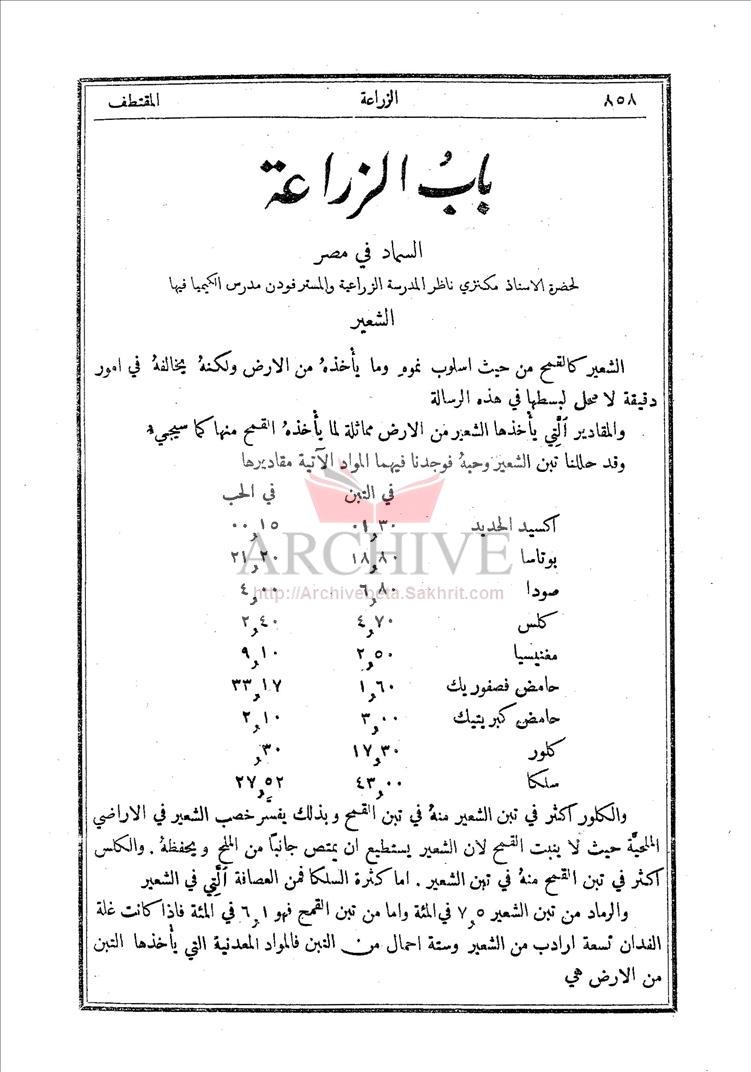 ٨٥٨ الزراعة المقتطف
بابُ الزراعة
السماد في مصر
لحضرة الاستاذ مكنزي ناظر المدرسة الزراعية والمستر فودن مدرس الكيميا فيها
الشعير
الشعير كالقمح من حيث اسلوب نموه وما يأْخذهُ من الارض ولكنهُ يخالفهُ في امور
دقيقة لا محل لبسطها في هذه الرسالة
والمقادير الَّتي يأْخذها الشعير من الارض مماثلة لما يأْخذهُ القمح منها كما سيجيء
وقد حللنا تبن الشعير وحبهُ فوجدنا فيهما المواد الآتية مقاديرها
في التبن في الحب
اكسيد الحديد ٠١,٣٠ ٠٠,١٥
بوتاسا ١٨,٨٠ ٢١,٢٠
صودا ٦,٨٠ ٤,٠٠
كلس ٤,٧٠ ٢,٤٠
مغنيسيا ٢,٥٠ ٩,١٠
حامض فصفوريك ١,٦٠ ٣٣,١٧
حامض كبريتيك ٣,٠٠ ٢,١٠
كلور ١٧,٣٠ ,٣٠
سلكا ٤٣,٠٠ ٢٧,٥٢
ARCHIVE
http://Archivebeta.Sakhrit.com
والكلور اكثر في تبن الشعير منهُ في تبن القمح وبذلك يفسَّر خصب الشعير في الاراضي
الملحيَّة حيث لا ينبت القمح لان الشعير يستطيع ان يمتص جانبًا من الملح ويحفظهُ. والكلس
اكثر في تبن القمح منهُ في تبن الشعير. اما كثرة السلكا فمن العصافة الَّتي في الشعير
والرماد من تبن الشعير ٧,٥ في المئة واما من تبن القمح فهو ٦,١ في المئة فاذا كانت غلة
الفدان تسعة ارادب من الشعير وستة احمال من التبن فالمواد المعدنية التي يأخذها التبن
من الارض هي